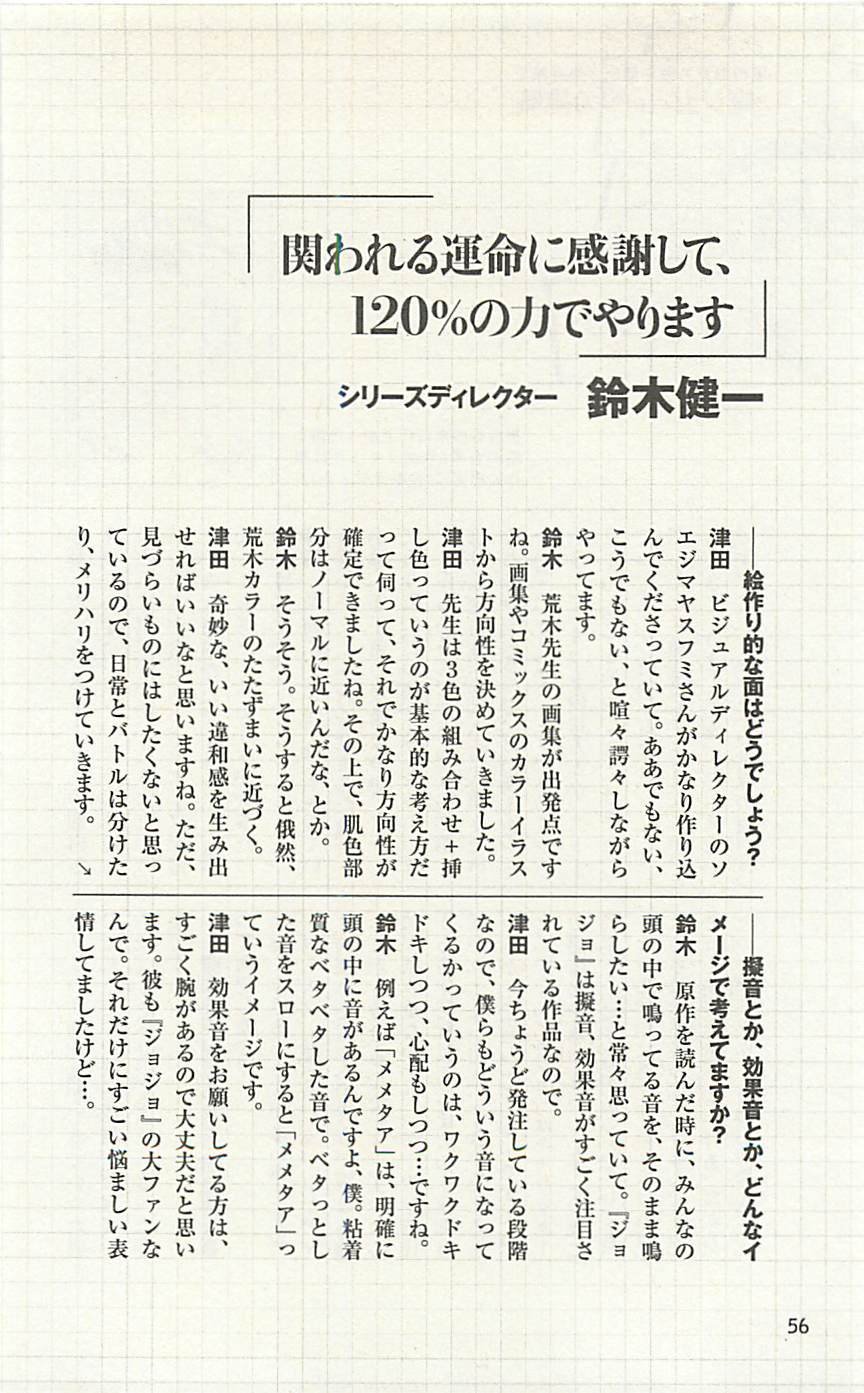 関われる運命に感謝して、
120%の力でやります
シリーズディレクター 鈴木健一
――絵作り的な面はどうでしょう？
津田　ビジュアルディレクターのソ
エジマヤスフミさんがかなり作り込
んでくださっていて。ああでもない、
こうでもない、と喧々諤々しながら
やってます。
鈴木　荒木先生の画集が出発点です
ね。画集やコミックスのカラーイラス
トから方向性を決めていきました。
津田　先生は3色の組み合わせ＋挿
し色っていうのが基本的な考え方だ
って伺って、それでかなり方向性が
確定できましたね。その上で、肌色部
分はノーマルに近いんだな、とか。
鈴木　そうそう。そうすると俄然、
荒木カラーのたたずまいに近づく。
津田　奇妙な、いい違和感を生み出
せればいいなと思いますね。ただ、
見づらいものにはしたくないと思っ
ているので、日常とバトルは分けた
り、メリハリをつけていきます。　↘
――擬音とか、効果音とか、どんなイ
メージで考えてますか？
鈴木　原作を読んだ時に、みんなの
頭の中で鳴ってる音を、そのまま鳴
らしたい…と常々思っていて。『ジョ
ジョ』は擬音、効果音がすごく注目さ
れている作品なので。
津田　今ちょうど発注している段階
なので、僕らもどういう音になって
くるかっていうのは、ワクワクドキ
ドキしつつ、心配もしつつ…ですね。
鈴木　例えば「メメタア」は、明確に
頭の中に音があるんですよ、僕。粘着
質なベタベタした音で。ベタっとし
た音をスローにすると「メメタア」っ
ていうイメージです。
津田　効果音をお願いしてる方は、
すごく腕があるので大丈夫だと思い
ます。彼も『ジョジョ』の大ファンな
んで。それだけにすごい悩ましい表
情してましたけど…。
56